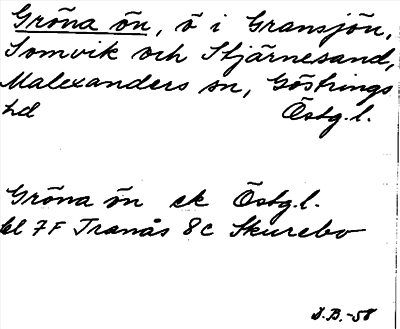 Gröna ön, ö i Gransjön,
Somvik och Stjärnesand,
Malexanders sn, Göstrings
hd Östg.l.
Gröna ön ek Östg.l.
bl 7F Tranås 8c Skurebo
D.B.-58